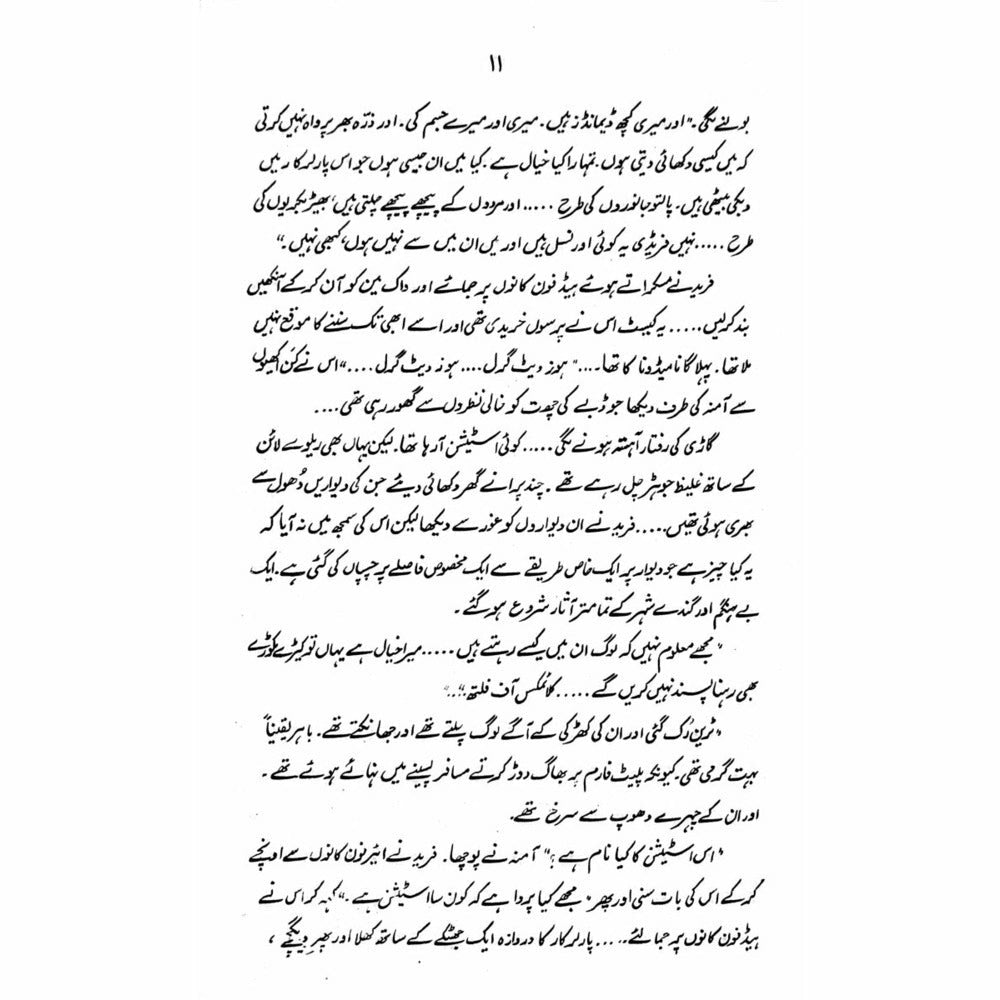 ۱۱
بولنے لگی۔" اور میری کچھ ڈیمانڈز ہیں۔ میری اور میرے جسم کی۔ اور ذرّہ بھر پرواہ نہیں کرتی
کہ میں کیسی دکھائی دیتی ہوں۔ تمہارا کیا خیال ہے۔ کیا میں ان جیسی ہوں جو اس پارلر کار میں
دبکی بیٹھی ہیں۔ پالتو جانوروں کی طرح ..... اور مردوں کے پیچھے پیچھے چلتی ہیں، بھیڑ بکریوں کی
طرح ..... نہیں فریڈی یہ کوئی اور نسل ہیں اور میں ان میں سے نہیں ہوں، کبھی نہیں۔"
فرید نے مسکراتے ہوئے ہیڈ فون کانوں پر جمائے اور واک مین کو آن کر کے آنکھیں
بند کر لیں ..... یہ کیسٹ اس نے پرسوں خریدی تھی اور اسے ابھی تک سننے کا موقع نہیں
ملا تھا۔ پہلا گانا میڈونا کا تھا۔..." ہوز دیٹ گرل .... ہوز دیٹ گرل ...." اس نے کن اکھیوں
سے آمنہ کی طرف دیکھا جو ڈبے کی چھت کو خالی نظروں سے گھور رہی تھی ....
گاڑی کی رفتار آہستہ ہونے لگی ..... کوئی اسٹیشن آ رہا تھا۔ لیکن یہاں بھی ریلوے لائن
کے ساتھ غلیظ جوہڑ چل رہے تھے۔ چند پرانے گھر دکھائی دیئے جن کی دیواریں دُھول سے
بھری ہوئی تھیں ..... فرید نے ان دیواروں کو غور سے دیکھا لیکن اس کی سمجھ میں نہ آیا کہ
یہ کیا چیز ہے جو دیوار پر ایک خاص طریقے سے ایک مخصوص فاصلے پر چسپاں کی گئی ہے۔ ایک
بے ہنگم اور گندے شہر کے تمام تر آثار شروع ہو گئے۔
"مجھے معلوم نہیں کہ لوگ ان میں کیسے رہتے ہیں ..... میرا خیال ہے یہاں تو کیڑے مکوڑے
بھی رہنا پسند نہیں کریں گے ..... کلائمکس آف فلتھ..."
"ٹرین رُک گئی اور ان کی کھڑکی کے آگے لوگ چلتے تھے اور جھانکتے تھے۔ باہر یقیناً
بہت گرمی تھی۔ کیونکہ پلیٹ فارم پر بھاگ دوڑ کرتے مسافر پسینے میں نہائے ہوئے تھے۔
اور ان کے چہرے دھوپ سے سرخ تھے۔
"اس اسٹیشن کا کیا نام ہے؟" آمنہ نے پوچھا۔ فرید نے ائیر فون کانوں سے اونچے
کر کے اس کی بات سنی اور پھر "مجھے کیا پروا ہے کہ کون سا اسٹیشن ہے۔" کہہ کر اس نے
ہیڈ فون کانوں پر جما لئے۔.... پارلر کار کا دروازہ ایک جھٹکے کے ساتھ کھلا اور پھر دیگچے،